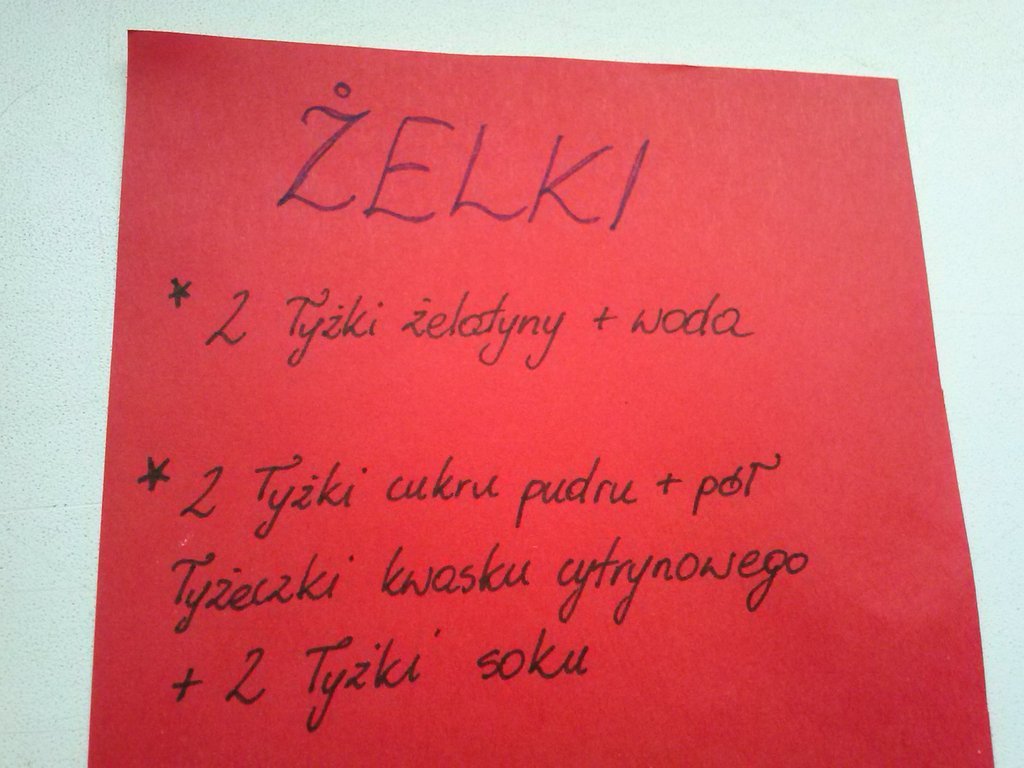 ŻELKI
* 2 łyżki żelatyny + woda
* 2 łyżki cukru pudru + pół
łyżeczki kwasku cytrynowego
+ 2 łyżki soku